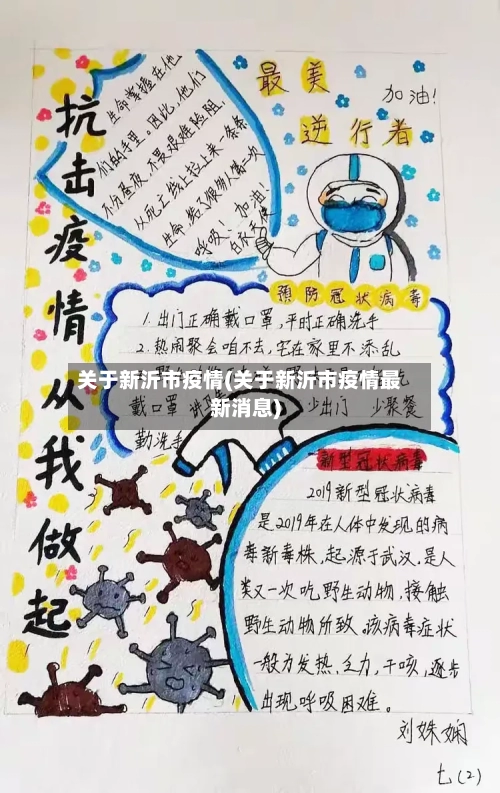 抗击疫情从我做起
生命掌握在他
们的手里。因此,他们
不分昼夜,不畏艰难险阻,
从死亡线上拉上来一条条
生命,给了很多人第二次
呼吸!加油!
白衣天使
最美
加油!
逆行者
预防冠状病毒
1.出门正确戴口罩,平时正确洗手
2.热闹聚会咱不去,宅在家里不添乱
关于新沂市疫情(关于新沂市疫情最
新消息)
戴口罩 讲卫生 少出门 少聚餐
勤洗手
新型冠状病毒
2019新型冠状病毒
是2019年在人体中发现的病
毒新毒株,起源于武汉,是人
类又一次吃野生动物,接触
野生动物所致。该病毒症状
一般为发热,乏力,干咳,逐步
出现呼吸困难。
刘姝娴
七(2)